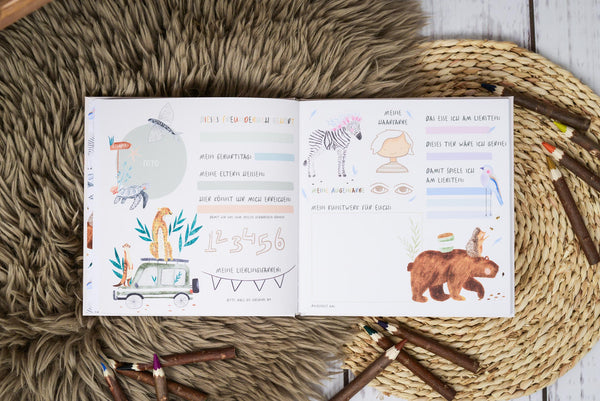 DIESES FREUNDEBUCH GEHÖRT:
FOTO
MEIN GEBURTSTAG:
MEINE ELTERN HEISSEN:
HIER KÖNNT IHR MICH ERREICHEN:
1 2 3 4 5 6
MEINE LIEBLINGSFARBEN:
MEINE HAARFARBE:
MEINE AUGENFARBE:
MEIN KUNSTWERK FÜR EUCH:
DAS ESSE ICH AM LIEBSTEN:
DIESES TIER WÄRE ICH GERNE:
DAMIT SPIELE ICH AM LIEBSTEN: